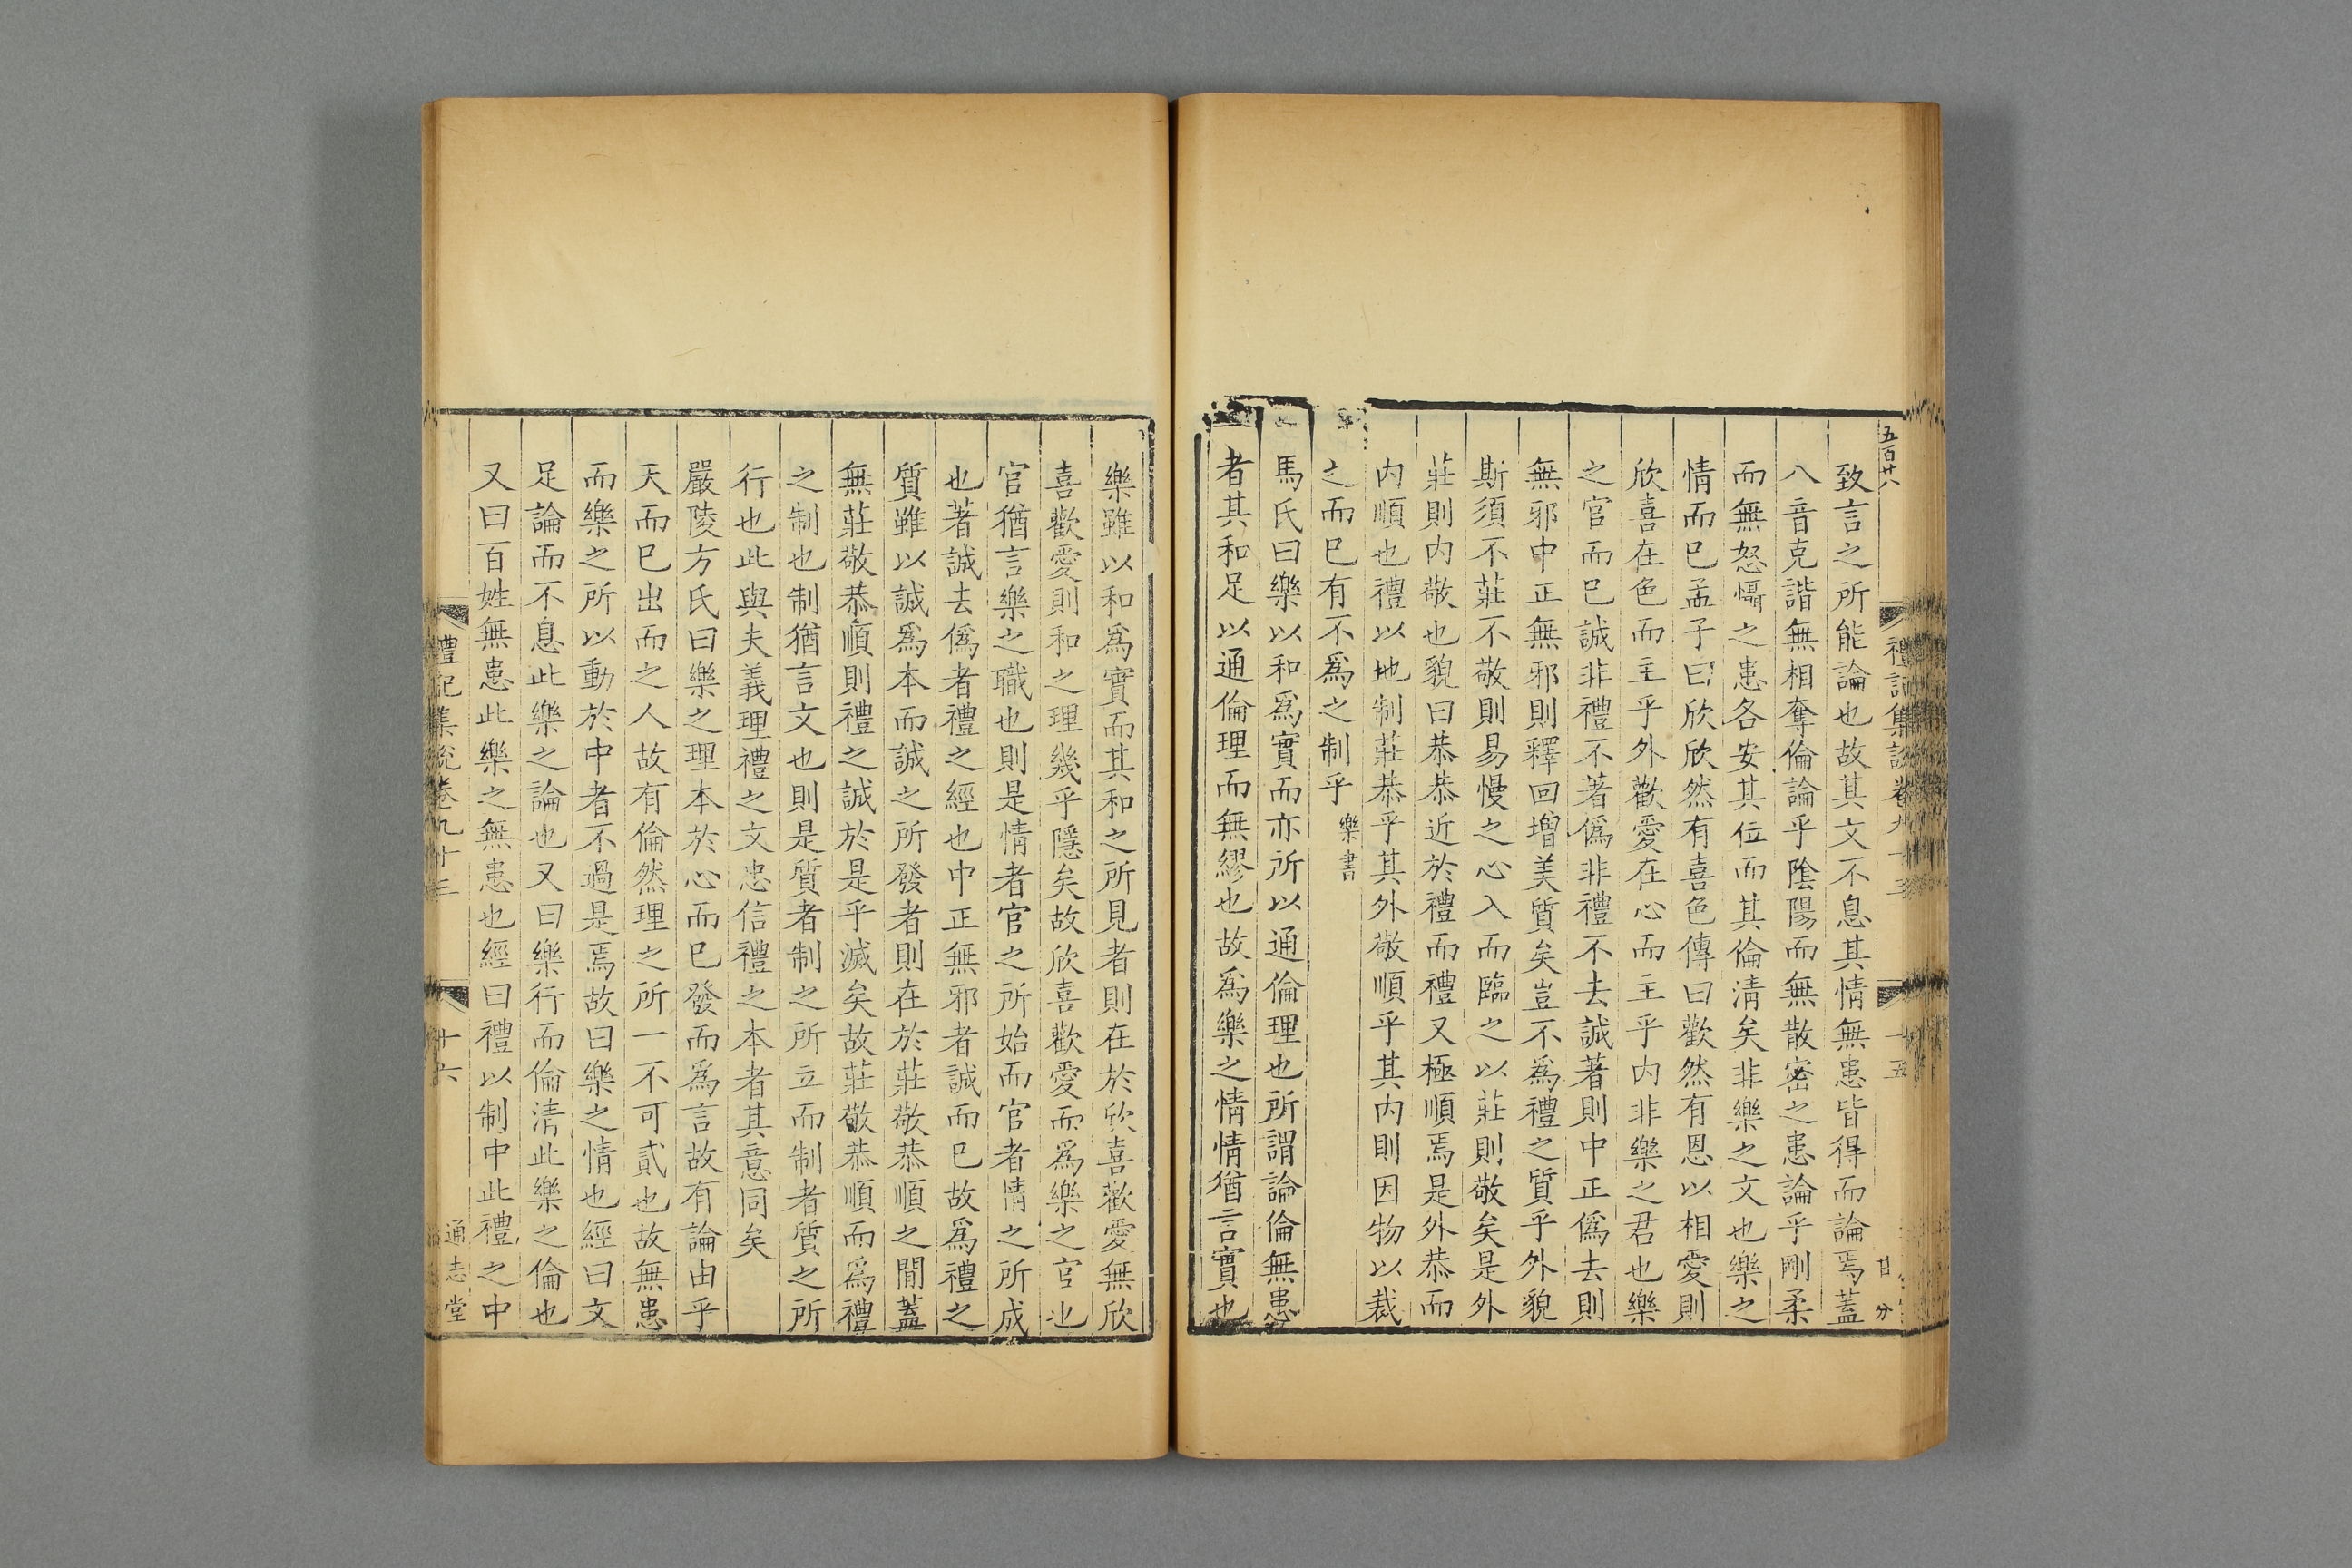 五百廿八
致言之所能論也故其文不息其情無患皆得而論焉蓋
八音克諧無相奪倫論乎陰陽而無散密之患論乎剛柔
而無怒懾之患各安其位而其倫清矣非樂之文也樂之
情而已孟子曰欣欣然有喜色傳曰歡然有恩以相愛則
欣喜在色而主乎外歡愛在心而主乎内非樂之君也樂
之官而已誠非禮不著僞非禮不去誠著則中正僞去則
無邪中正無邪則釋回增美質矣豈不爲禮之質乎外貌
斯須不莊不敬則易慢之心入而臨之以莊則敬矣是外
莊則内敬也貌曰恭恭近於禮而禮又極順焉是外恭而
内順也禮以地制莊恭乎其外敬順乎其内則因物以裁
之而已有不爲之制乎樂書
馬氏曰樂以和爲實而亦所以通倫理也所謂論倫無患
者其和足以通倫理而無繆也故爲樂之情情猶言實也
樂雖以和爲實而其和之所見者則在於欣喜歡愛無欣
喜歡愛則和之理幾乎隱矣故欣喜歡愛而爲樂之官也
官猶言樂之職也則是情者官之所始而官者情之所成
也著誠去僞者禮之經也中正無邪者誠而已故爲禮之
質雖以誠爲本而誠之所發者則在於莊敬恭順之閒蓋
無莊敬恭順則禮之誠於是乎滅矣故莊敬恭順而爲禮
之制也制猶言文也則是質者制之所立而制者質之所
行也此與夫義理禮之文忠信禮之本者其意同矣
嚴陵方氏曰樂之理本於心而已發而爲言故有論由乎
天而已出而之人故有倫然理之所一不可貳也故無患
而樂之所以動於中者不過是焉故曰樂之情也經曰文
足論而不息此樂之論也又曰樂行而倫清此樂之倫也
又曰百姓無患此樂之無患也經曰禮以制中此禮之中
禮記集說卷九十三
十六
通志堂